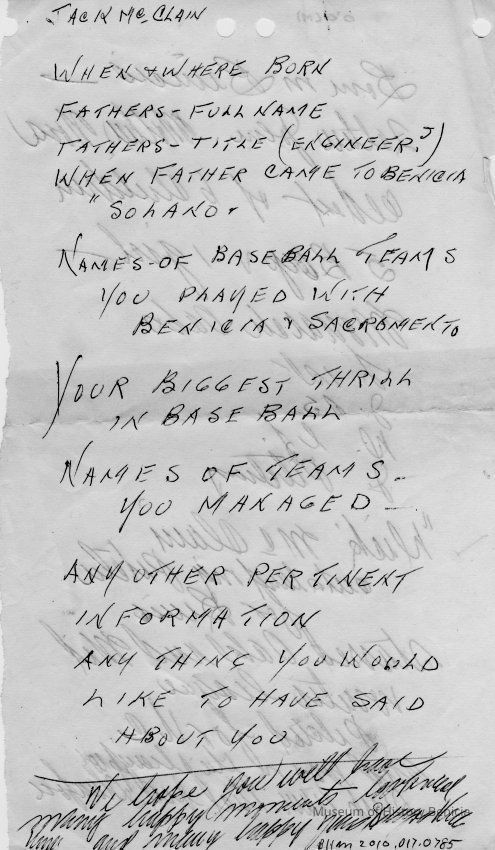 JACK McCLAIN
WHEN & WHERE BORN
FATHERS - FULL NAME
FATHERS - TITLE (ENGINEER?)
WHEN FATHER CAME TO BENICIA
" SOLANO.
NAMES-OF BASEBALL TEAMS
YOU PLAYED WITH
BENICIA & SACROMENTO
YOUR BIGGEST THRILL
IN BASE BALL
NAMES OF TEAMS -
YOU MANAGED -
ANY OTHER PERTINENT
INFORMATION
ANY THING YOU WOULD
LIKE TO HAVE SAID
ABOUT YOU
We hope you will have
many happy moments
and many happy
Museum of History Benicia
2010.017.0785